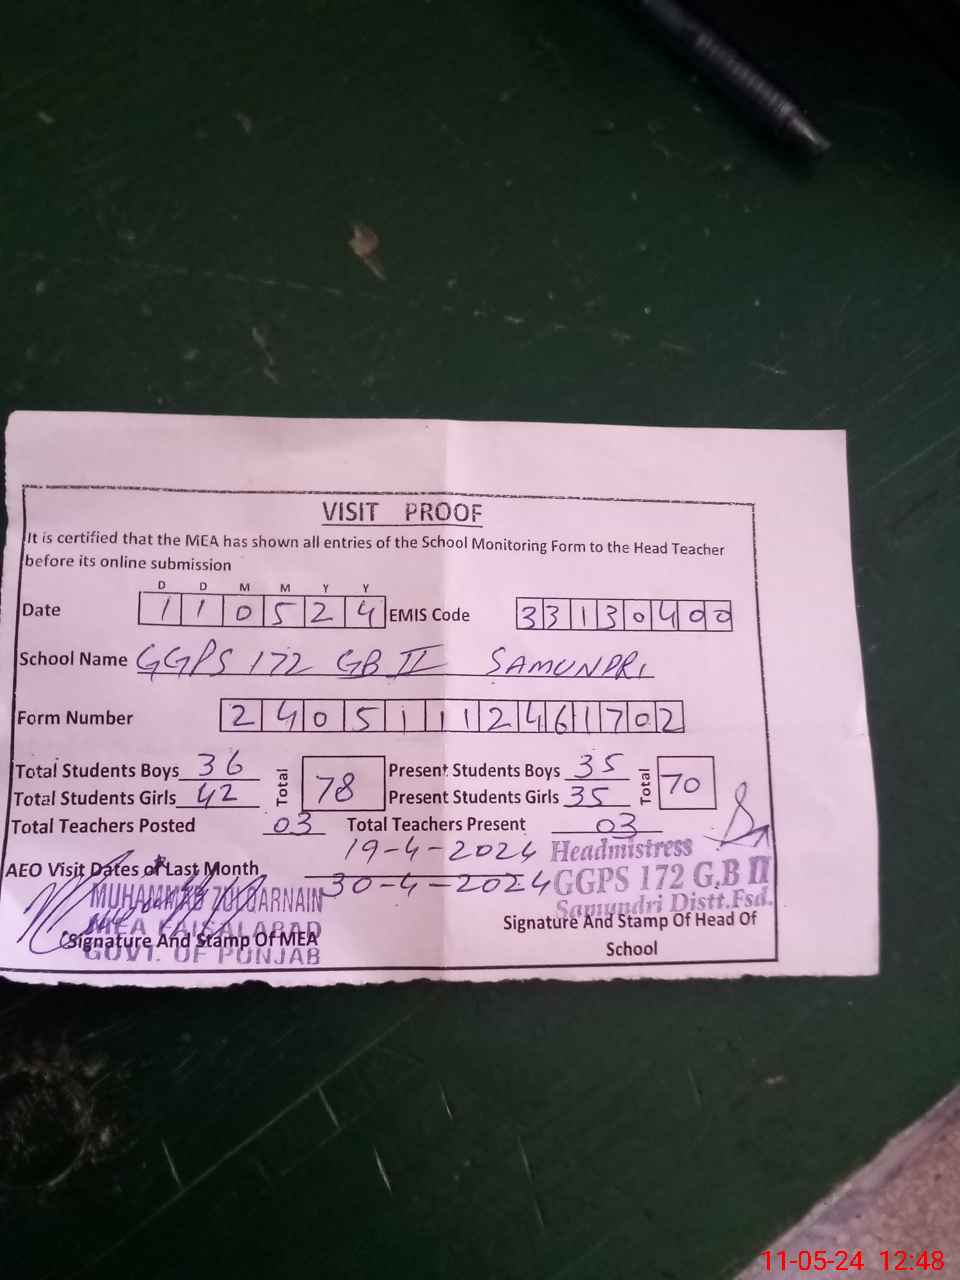 VISIT PROOF
It is certified that the MEA has shown all entries of the School Monitoring Form to the Head Teacher
before its online submission
D D M M Y Y
Date 1 1 0 5 2 4 EMIS Code 3 3 1 3 0 4 0 0
School Name GGPS 172 GB II SAMUNDRI
Form Number 2 4 0 5 1 1 1 2 4 6 1 7 0 2
Total Students Boys 36 Total 78 Present Students Boys 35 Total 70
Total Students Girls 42 Present Students Girls 35
Total Teachers Posted 03 Total Teachers Present 03
19-4-2024 Headmistress
AEO Visit Dates of Last Month 30-4-2024 GGPS 172 G.B II
MUHAMMAD ZULQARNAIN Samundri Distt.Fsd.
MEA FAISALABAD Signature And Stamp Of Head Of
Signature And Stamp Of MEA School
GOVT. OF PUNJAB
11-05-24 12:48